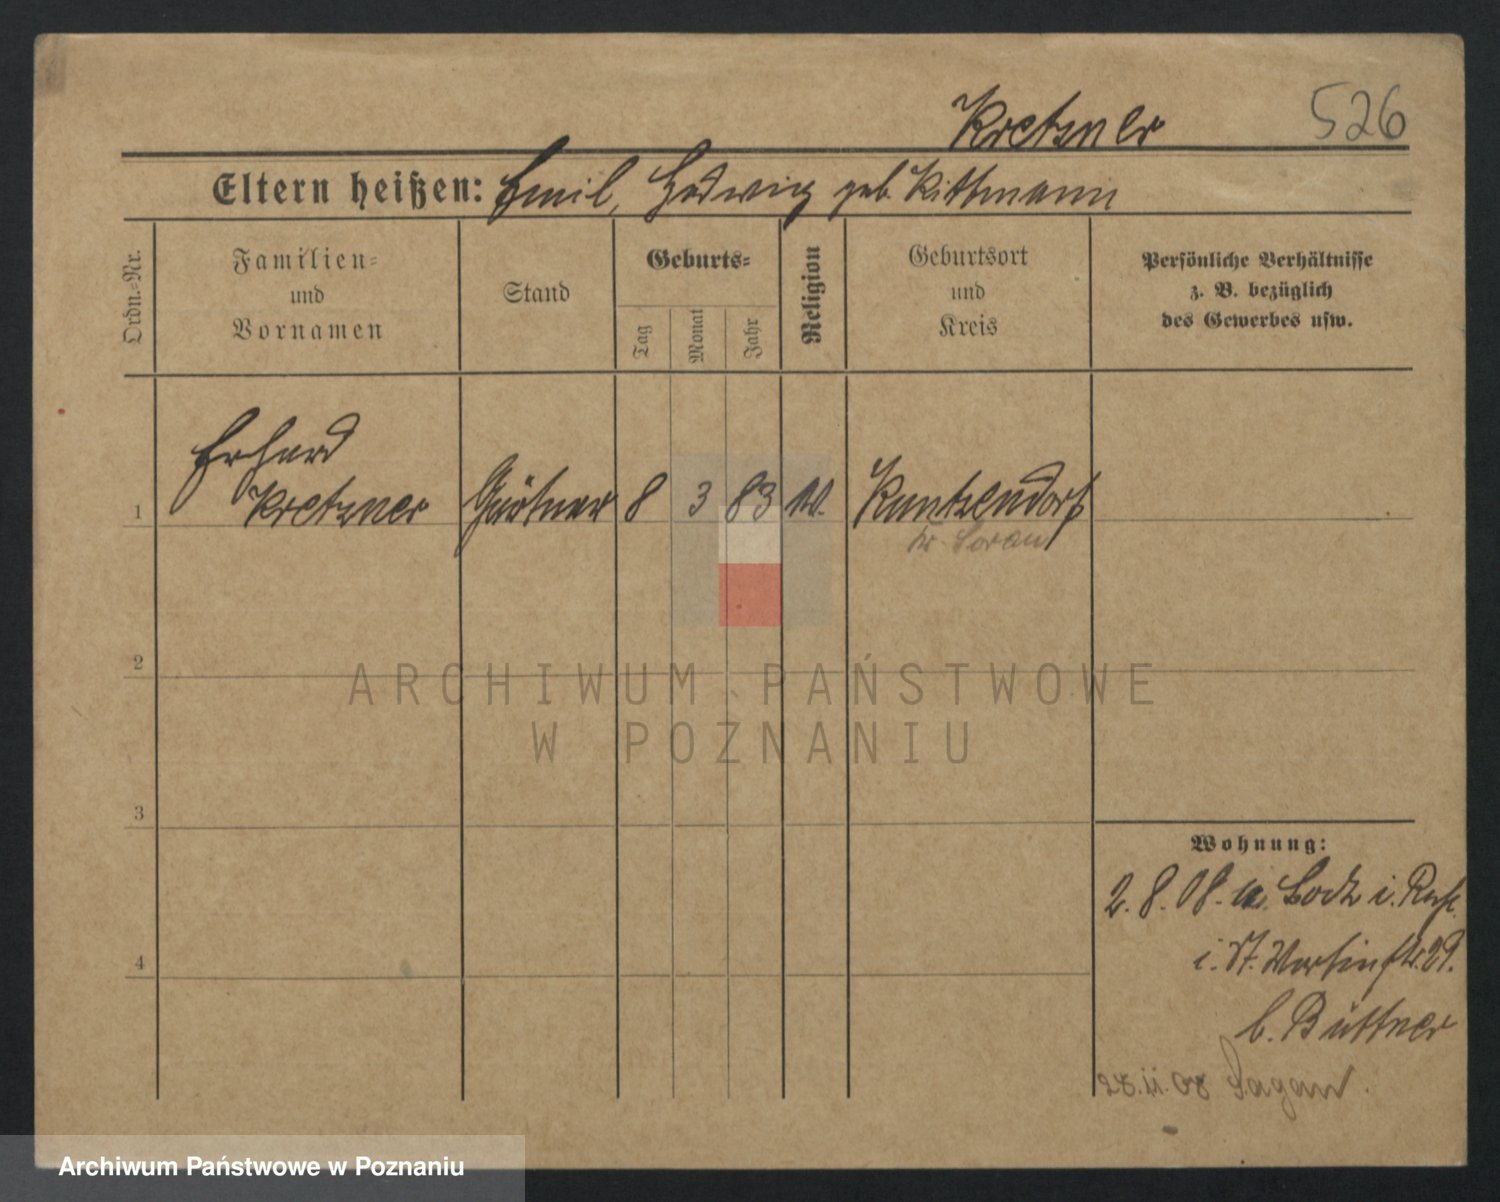 Kretzner 526
Eltern heißen: Emil, Hedwig geb. Kittmann
Ordn.-Nr.
Familien-
und
Vornamen
Stand
Geburts-
Tag
Monat
Jahr
Religion
Geburtsort
und
Kreis
Persönliche Verhältnisse
z. B. bezüglich
des Gewerbes usw.
Erhard
1 Kretzner Gärtner 8 3 83 Kuntzendorf
Kr. Sorau
2
ARCHIWUM PAŃSTWOWE
W POZNANIU
3
Wohnung:
2. 8. 08. Lodz i.
i. St. Martinstr. 29.
4
b. Büttner
28.11.08 Sagan.
Archiwum Państwowe w Poznaniu